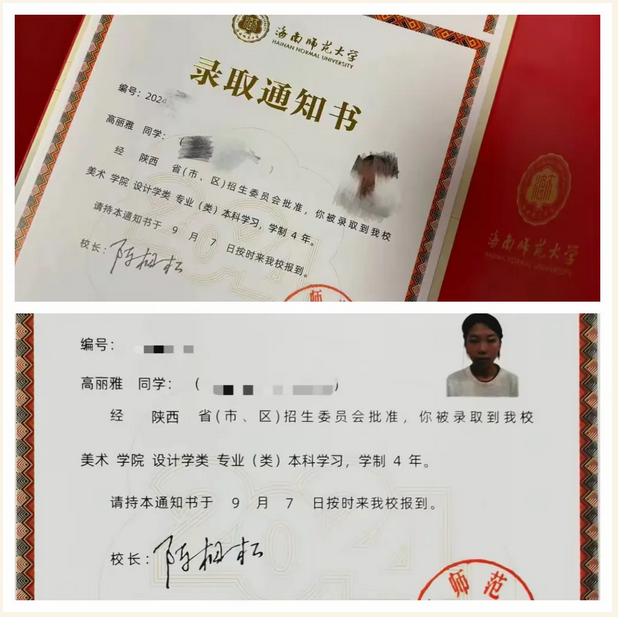 海南师范大学
HAINAN NORMAL UNIVERSITY
录取通知书
编号：2024
高丽雅 同学：
经 陕西 省(市、区)招生委员会批准，你被录取到我校
美术 学院 设计学类 专业（类）本科学习，学制 4 年。
请持本通知书于 9 月 7 日按时来我校报到。
校长：
海南师范大学
HAINAN NORMAL UNIVERSITY
师
编号：
高丽雅 同学：（ ）
经 陕西 省(市、区)招生委员会批准，你被录取到我校
美术 学院 设计学类 专业（类）本科学习，学制 4 年。
请持本通知书于 9 月 7 日按时来我校报到。
2024
校长：
师范